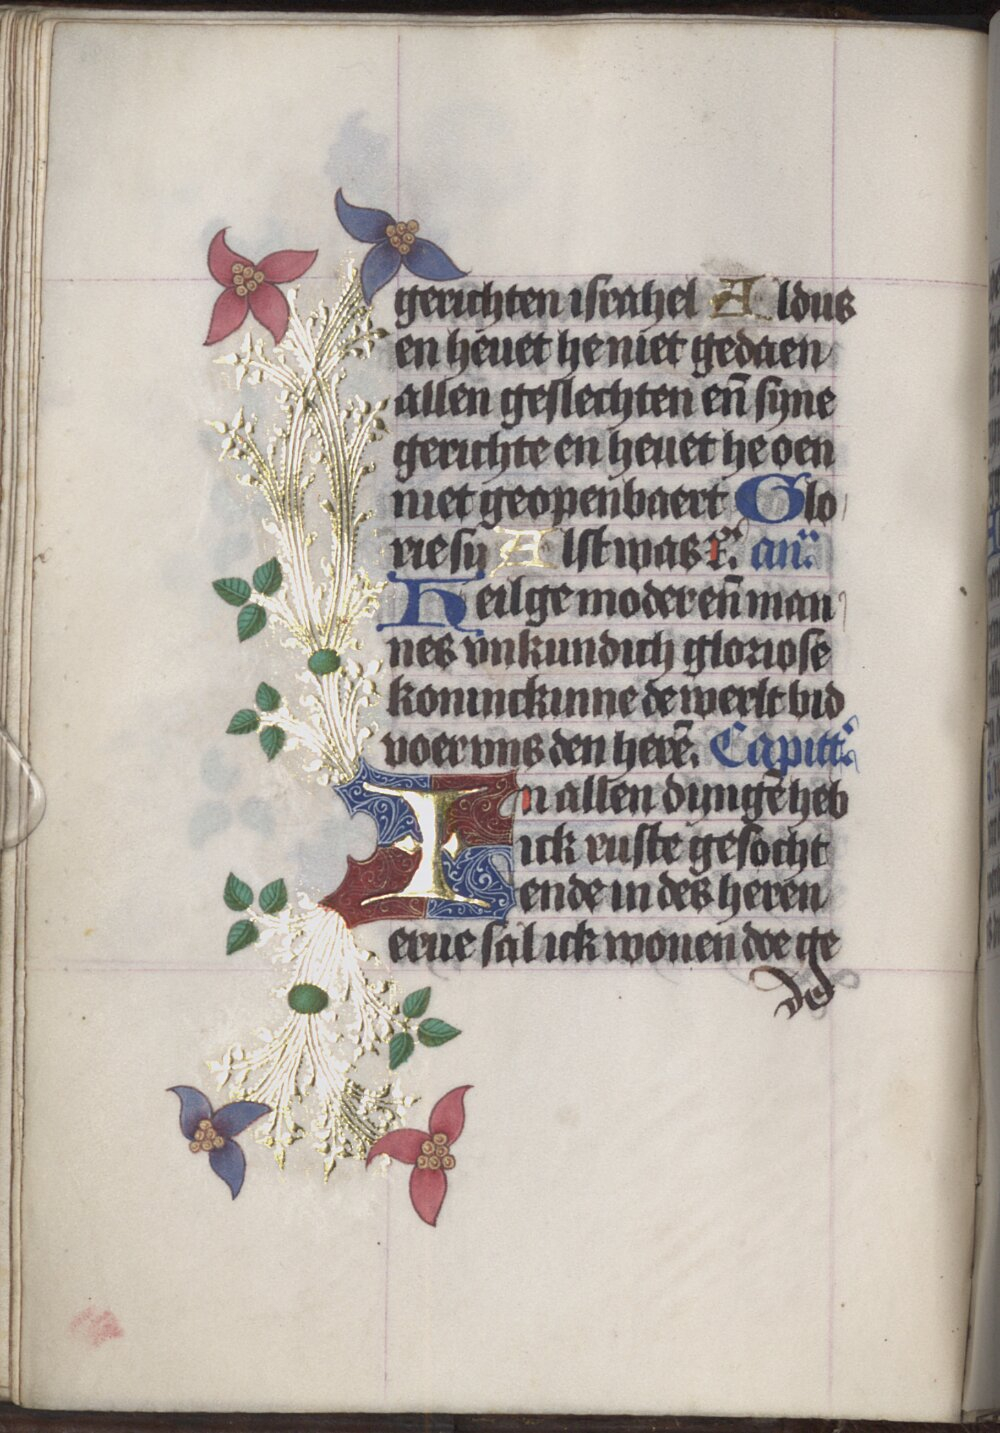 gerichten israhel Aldus
en heuet he niet gedaen
allen geslechten en̄ syne
gerichte en heuet he oen
niet geopenbaert Glo
rie sy Alst was r̃. an̄.
Heilge moder en̄ man
nes vnkundich gloriose
koninckinne de werlt bid
voer vns den herē. Capitt.
In allen dyngē heb
ick ruste gesocht
ende in des heren
erue sal ick wonen doe ge
de